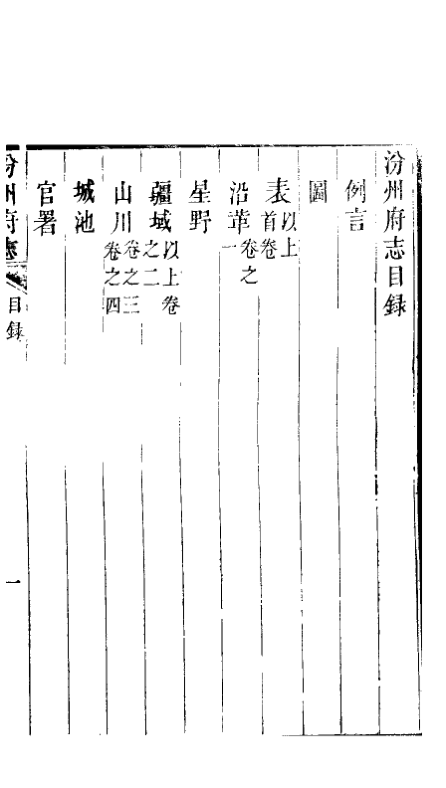 汾州府志目録
例言
圖
表以上首卷
沿革卷之一
星野
疆域以上卷之二
山川卷之三卷之四
城池
官署
汾州府志 目録 一